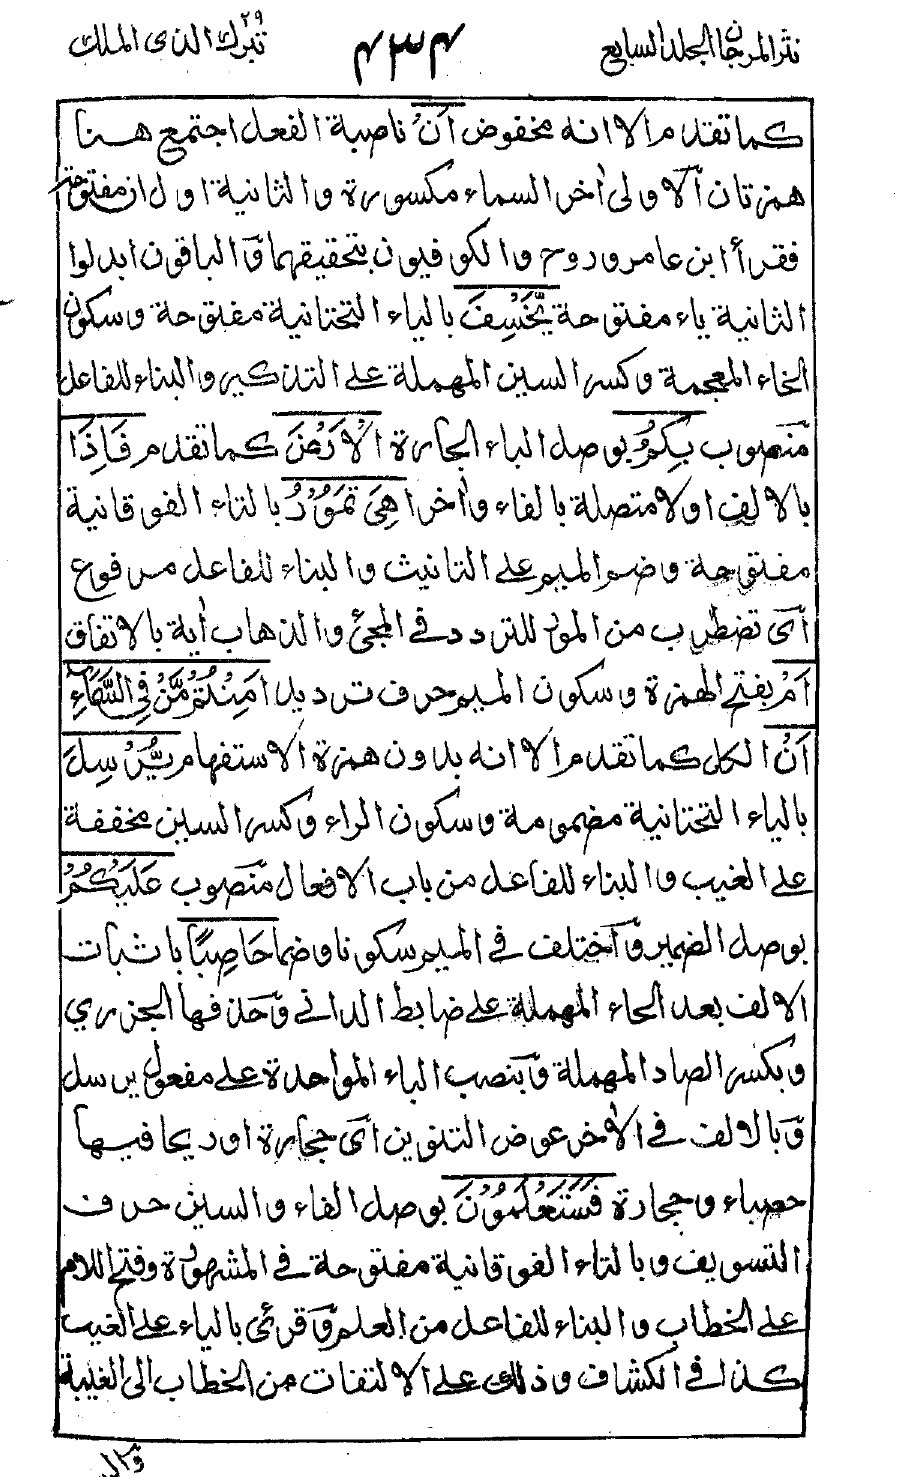 نثر المرجان الجلد السابع ٤٣٤ تبٰرك الذى الملك ٢٩
كما تقدم الا انه مخفوض اَنْ ناصبة الفعل اجتمع هنا
همزتان اۤلاولى اٰخر السماء مكسورة والثانية اول ان مفتوحة
فقرأ ابن عامر وروح والكوفيون بتحقيقهما وۤ الباقون ابدلوا
الثانية ياء مفتوحة يَّخْسِفَ بالياء التحتانية مفتوحة وسكون
الخاء المعجمة وكسر السين المهملة على التذكير والبناء للفاعل
منصوب بِكُمُ بوصل الباء الجارة الْاَرْضَ كما تقدم فَاِذَا
بالالف اولا متصلة بالفاء واٰخرا هِىَ تَمُوْرُ بالتاء الفوقانية
مفتوحة وضم الميم على التانيث والبناء للفاعل مرفوع
اۤى تضطرب من المور للتردد فى المجئ والذهاب اٰية بالاتفاق
اَمْ بفتح الهمزة وسكون الميم حرف ترديد اَمِنْتُمْ مَّنْ فِى السَّمَاءِ
اَنْ الكل كما تقدم الا انه بدون همزة الاستفهام يُّرْسِلَ
بالياء التحتانية مضمومة وسكون الراء وكسر السين مخففة
على الغيب والبناء للفاعل من باب الافعال منصوب عَلَيْكُمْ
بوصل الضمير وۤاختلف فى الميم سكونا وضما حَاصِبًا باثبات
الالف بعد الحاء المهملة على ضابط الدانى وۤحذفها الجزري
وبكسر الصاد المهملة وۤبنصب الباء الموحدة على مفعول يرسل
وۤبالالف فى الاٰخر عوض التنوين اۤى حجارة او ريحا فيها
حصباء وحجارة فَسَتَعْلَمُوْنَ بوصل الفاء والسين حرف
التسويف وبالتاء الفوقانية مفتوحة فى المشهورة وفتح اللام
على الخطاب والبناء للفاعل من العلم وۤقرئ بالياء على الغيب
كذا فى الكشاف وذلك على الالتفات من الخطاب الى الغيبة
وقال